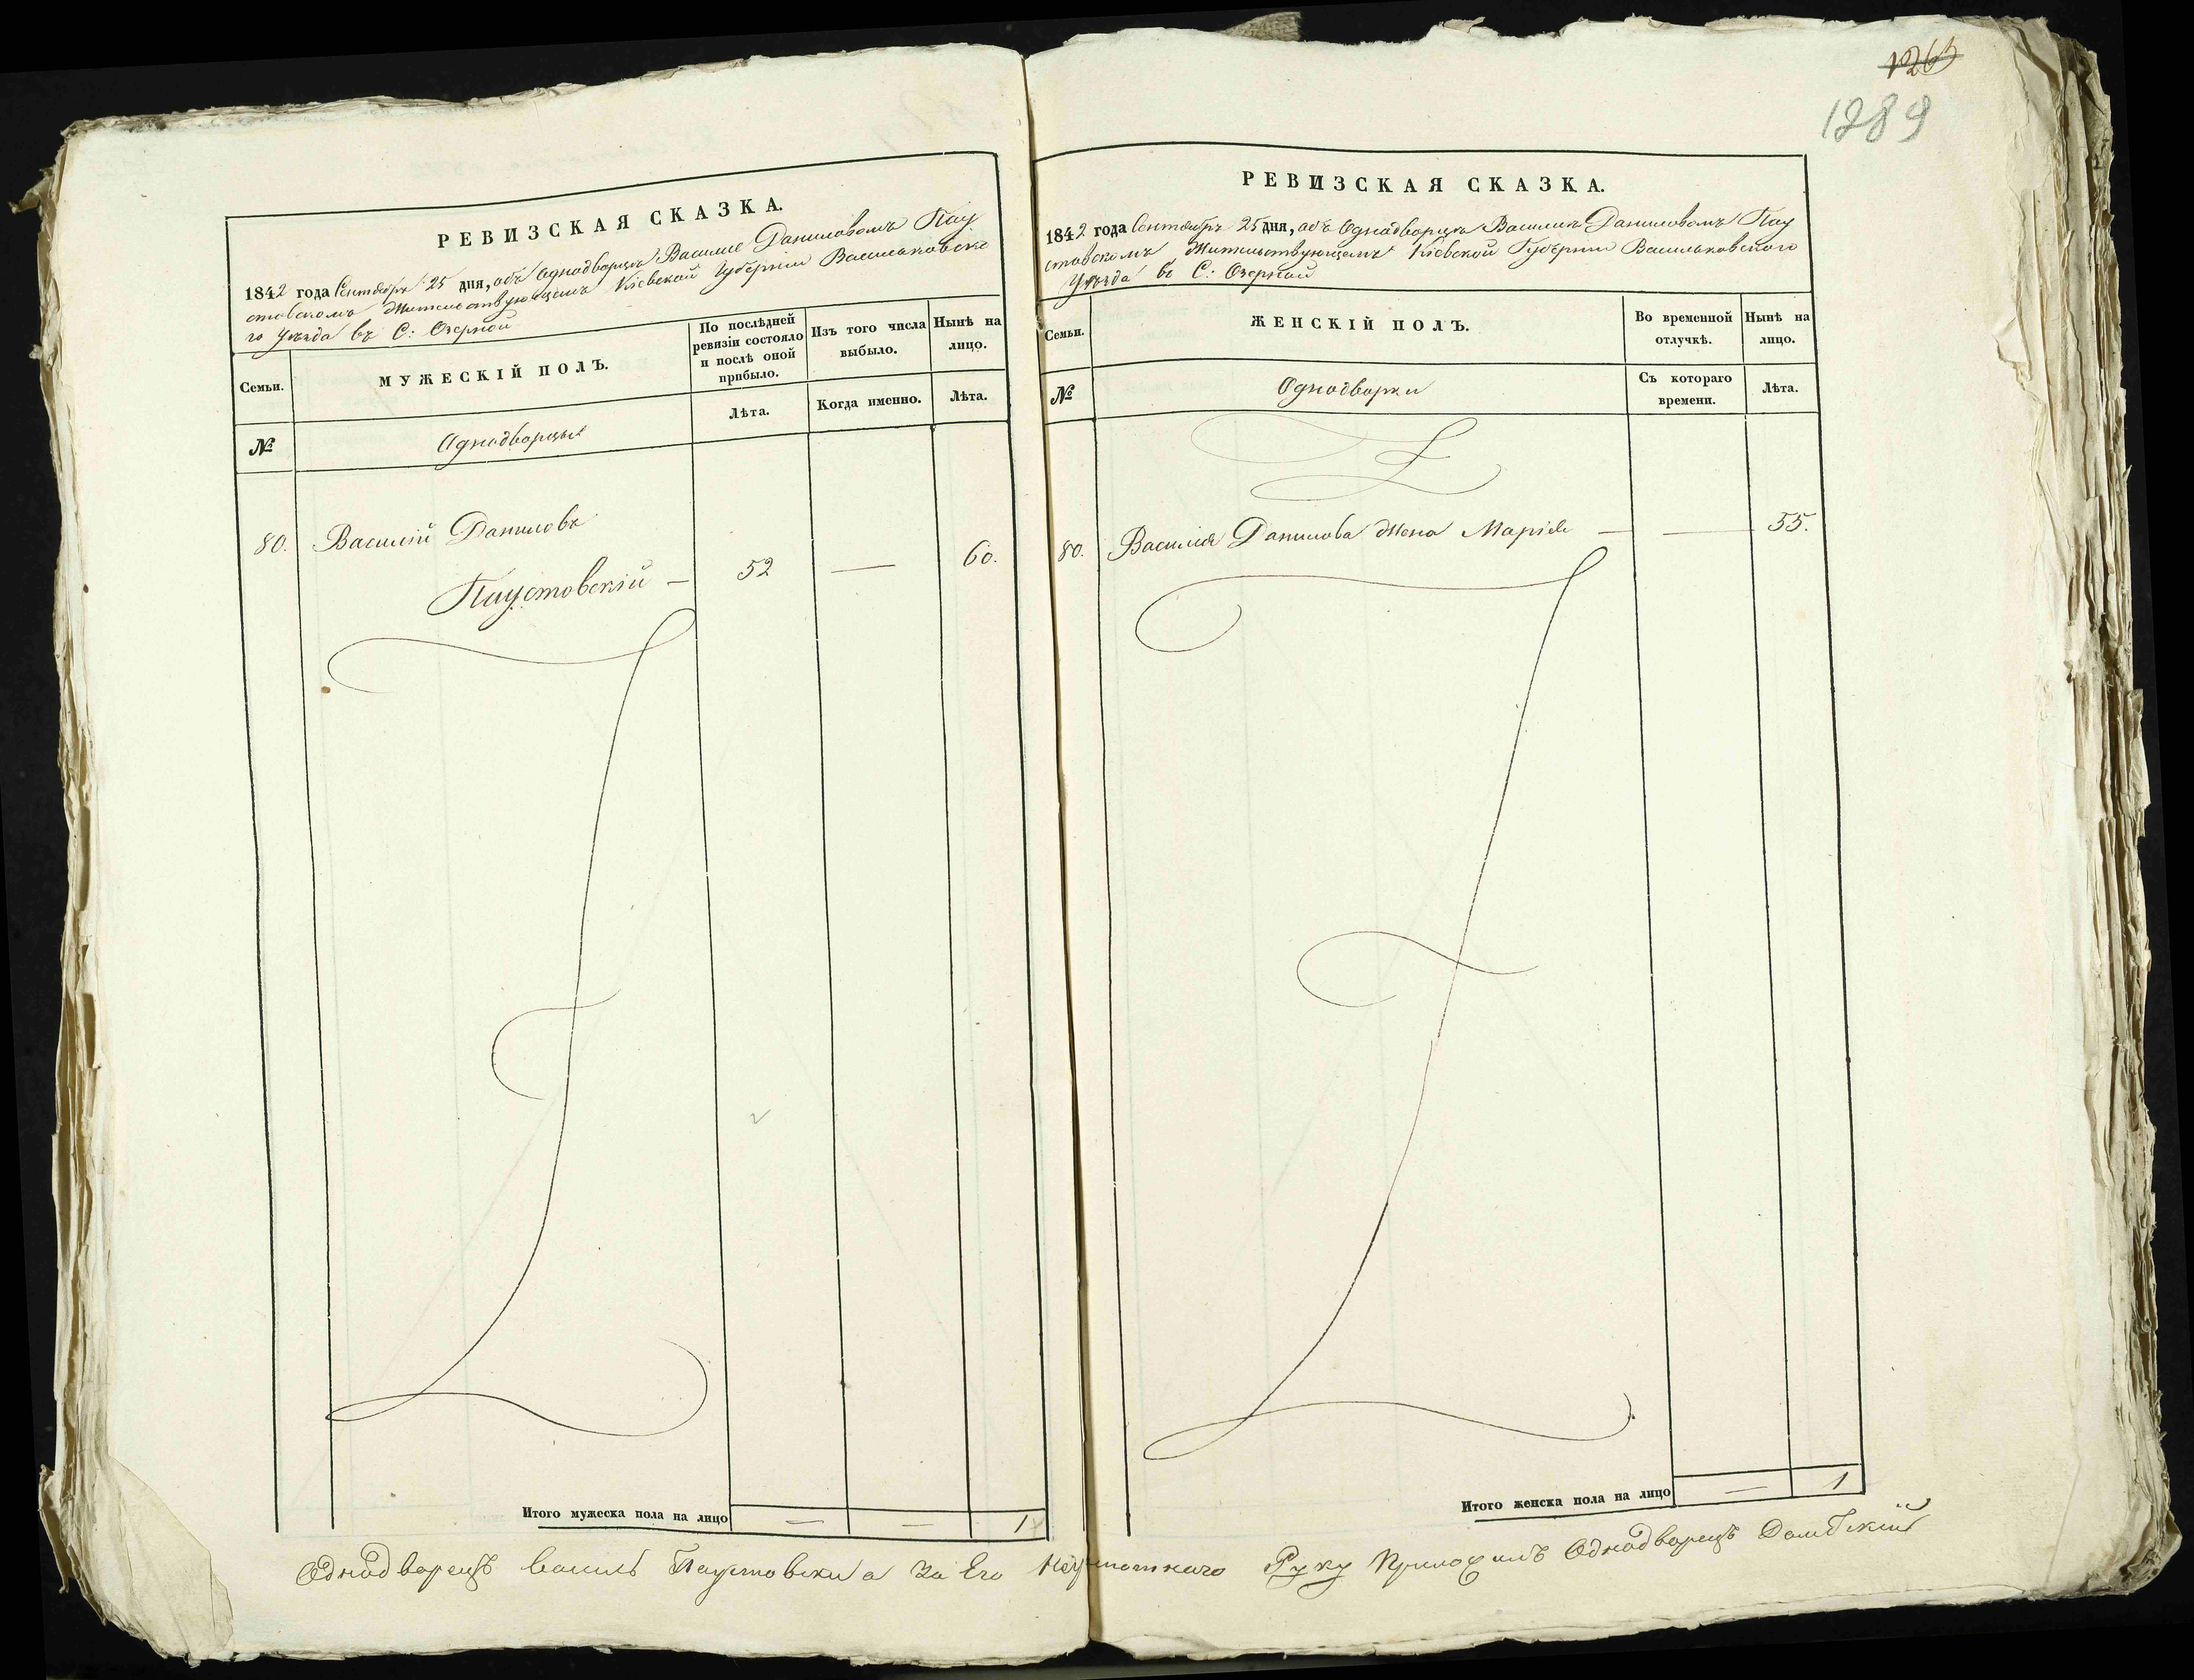 1265
1289
РЕВИЗСКАЯ СКАЗКА.
1842 года Сентября 25 дня, объ Однодворцѣ Василіе Даниловомъ Пау
стовскомъ Жительствующемъ Кіевской Губерніи Васильковска
го Уѣзда въ С: Озерной
Семьи.
МУЖЕСКІЙ ПОЛЪ.
По послѣдней ревизіи состояло и послѣ оной прибыло.
Изъ того числа выбыло.
Нынѣ на лицо.
Лѣта.
Когда именно.
Лѣта.
№
Однодворцы
80. Василій Даниловъ
Паустовскій — 52 — 60.
Итого мужеска пола на лицо — — 1
РЕВИЗСКАЯ СКАЗКА.
1842 года Сентября 25 дня, объ Однодворцѣ Василіѣ Даниловомъ Пау
стовскомъ Жительствующемъ Кіевской Губерніи Васильковского
Уѣзда въ С: Озерной
Семьи.
ЖЕНСКІЙ ПОЛЪ.
Во временной отлучкѣ.
Нынѣ на лицо.
№
Однодворки
Съ котораго времени.
Лѣта.
80. Василія Данилова жена Марія — — 55.
Итого женска пола на лицо — 1
Однодворецъ Василь Паустовски а За Его Неграмотнаго Руку Приложилъ Однодворецъ Домбскій